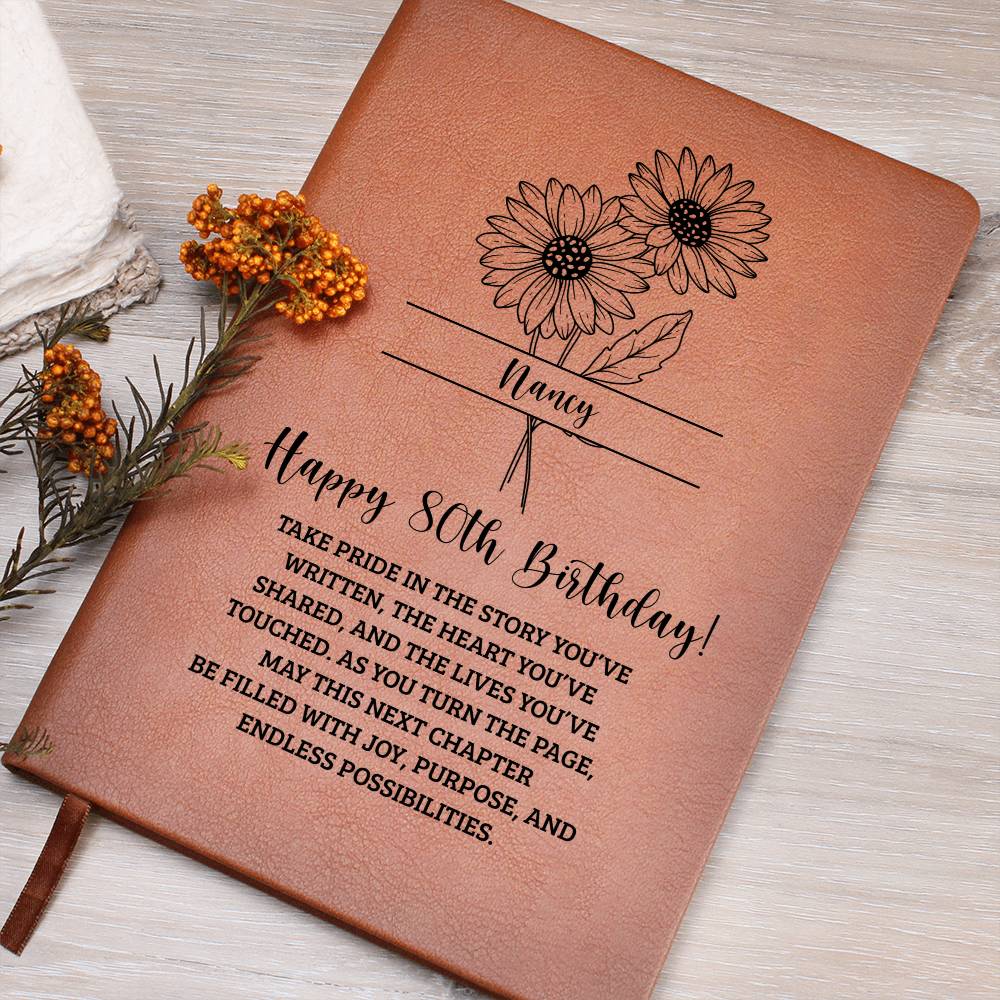 Nancy
Happy 80th Birthday!
TAKE PRIDE IN THE STORY YOU'VE
WRITTEN, THE HEART YOU'VE
SHARED, AND THE LIVES YOU'VE
TOUCHED. AS YOU TURN THE PAGE,
MAY THIS NEXT CHAPTER
BE FILLED WITH JOY, PURPOSE, AND
ENDLESS POSSIBILITIES.